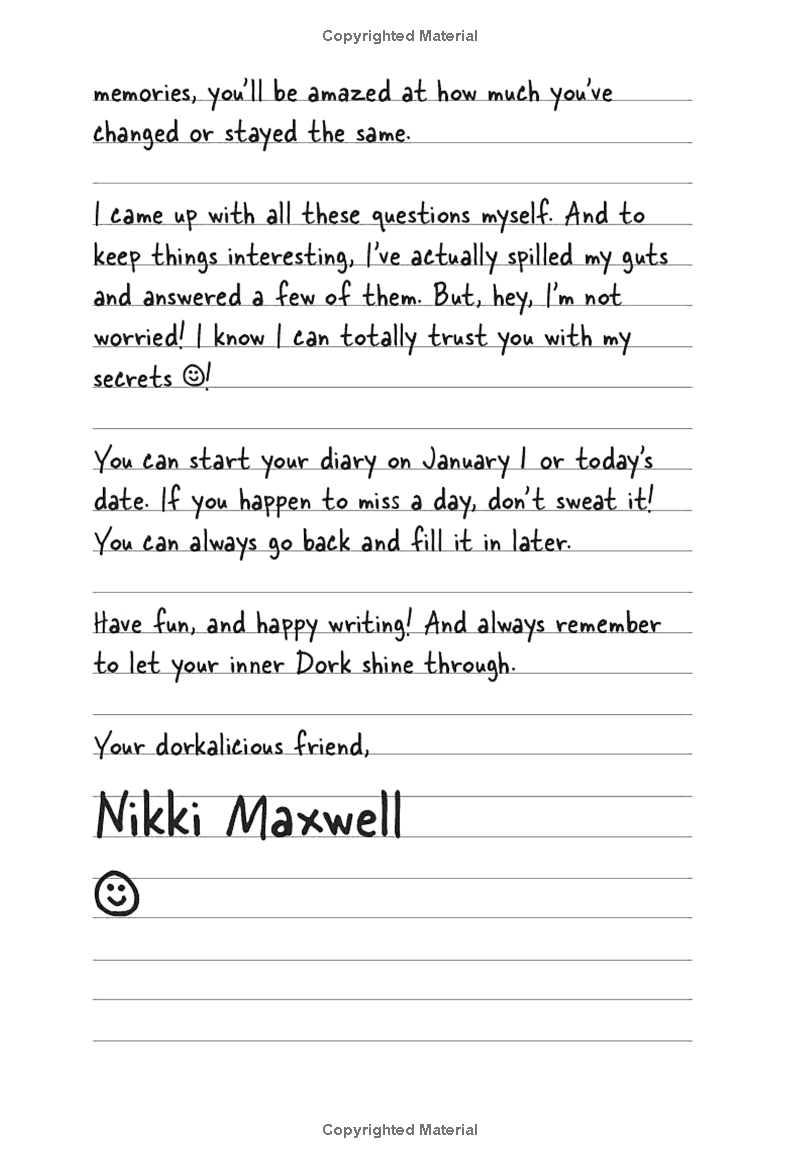 Copyrighted Material
memories, you'll be amazed at how much you've
changed or stayed the same.
I came up with all these questions myself. And to
keep things interesting, I've actually spilled my guts
and answered a few of them. But, hey, I'm not
worried! I know I can totally trust you with my
secrets ☺!
You can start your diary on January 1 or today's
date. If you happen to miss a day, don't sweat it!
You can always go back and fill it in later.
Have fun, and happy writing! And always remember
to let your inner Dork shine through.
Your dorkalicious friend,
Nikki Maxwell
☺
Copyrighted Material